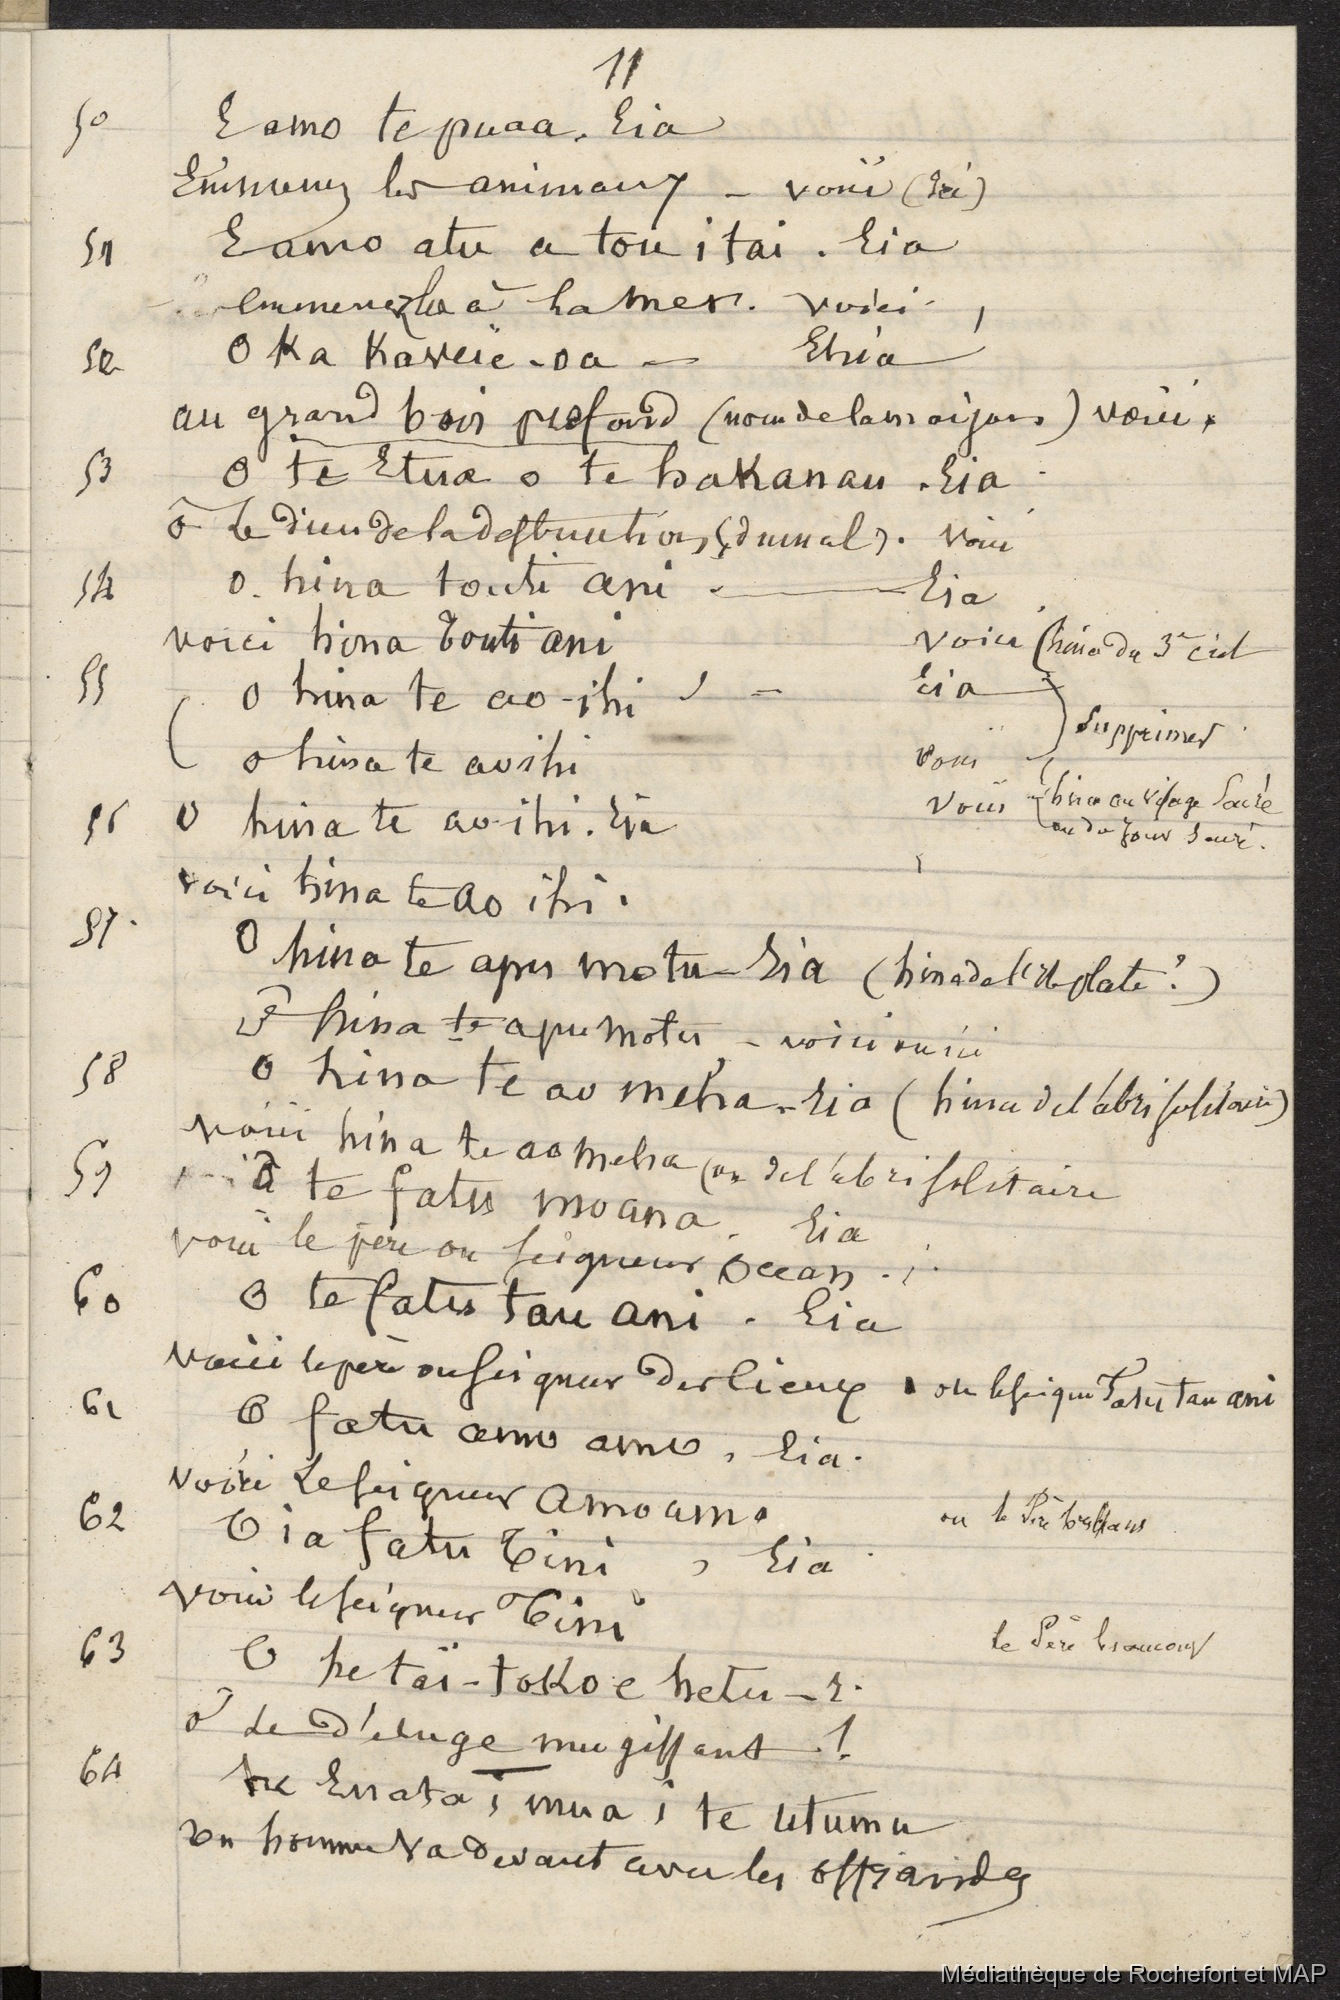 11
50 E amo te puaa. Eia
Emmenez les animaux - voici (Ici)
51 E amo atu a tou i tai. Eia
emmenez les à la mer. voici
52 O Ka Kaveie-oa - Ehia
au grand bois profond (nom de la maison) voici.
53 O te Etua o te hakanau. Eia
ô Le dieu de la destruction (du mal). voici
54 o. hina touti ani - Eia
voici hina Touti ani voici (hina du 3e ciel
55 O hina te ao-ihi - Eia
Supprimer
o hina te ao ihi voici
56 O hina te ao-ihi. Eia voici (hina au visage Sacré
ou du Jour Sacré.
voici hina te ao ihi.
57. O hina te apu motu - Eia (hina de l'Ile plate ?)
ô hina te apu motu - voici ou ici
58 O hina te ao meha - Eia (hina de l'abri solitaire)
voici hina te ao meha (ou de l'abri solitaire
59 O te fatu moana. Eia
voici le père ou Seigneur Océan.
60 O te fatu tau ani. Eia
Voici le père ou Seigneur des Cieux ou le seigneur Fatu tau ani
61 O fatu amo amo, Eia.
voici Le seigneur Amoamo
ou le Père
62 O ia fatu Tini, Eia
voici le seigneur Tini
le Père beaucoup
63 O he taï-toko e hetu - E.
ô Le Déluge mugissant !
64 Enata i mua i te utunu
Un homme va devant avec les offrandes
Médiathèque de Rochefort et MAP